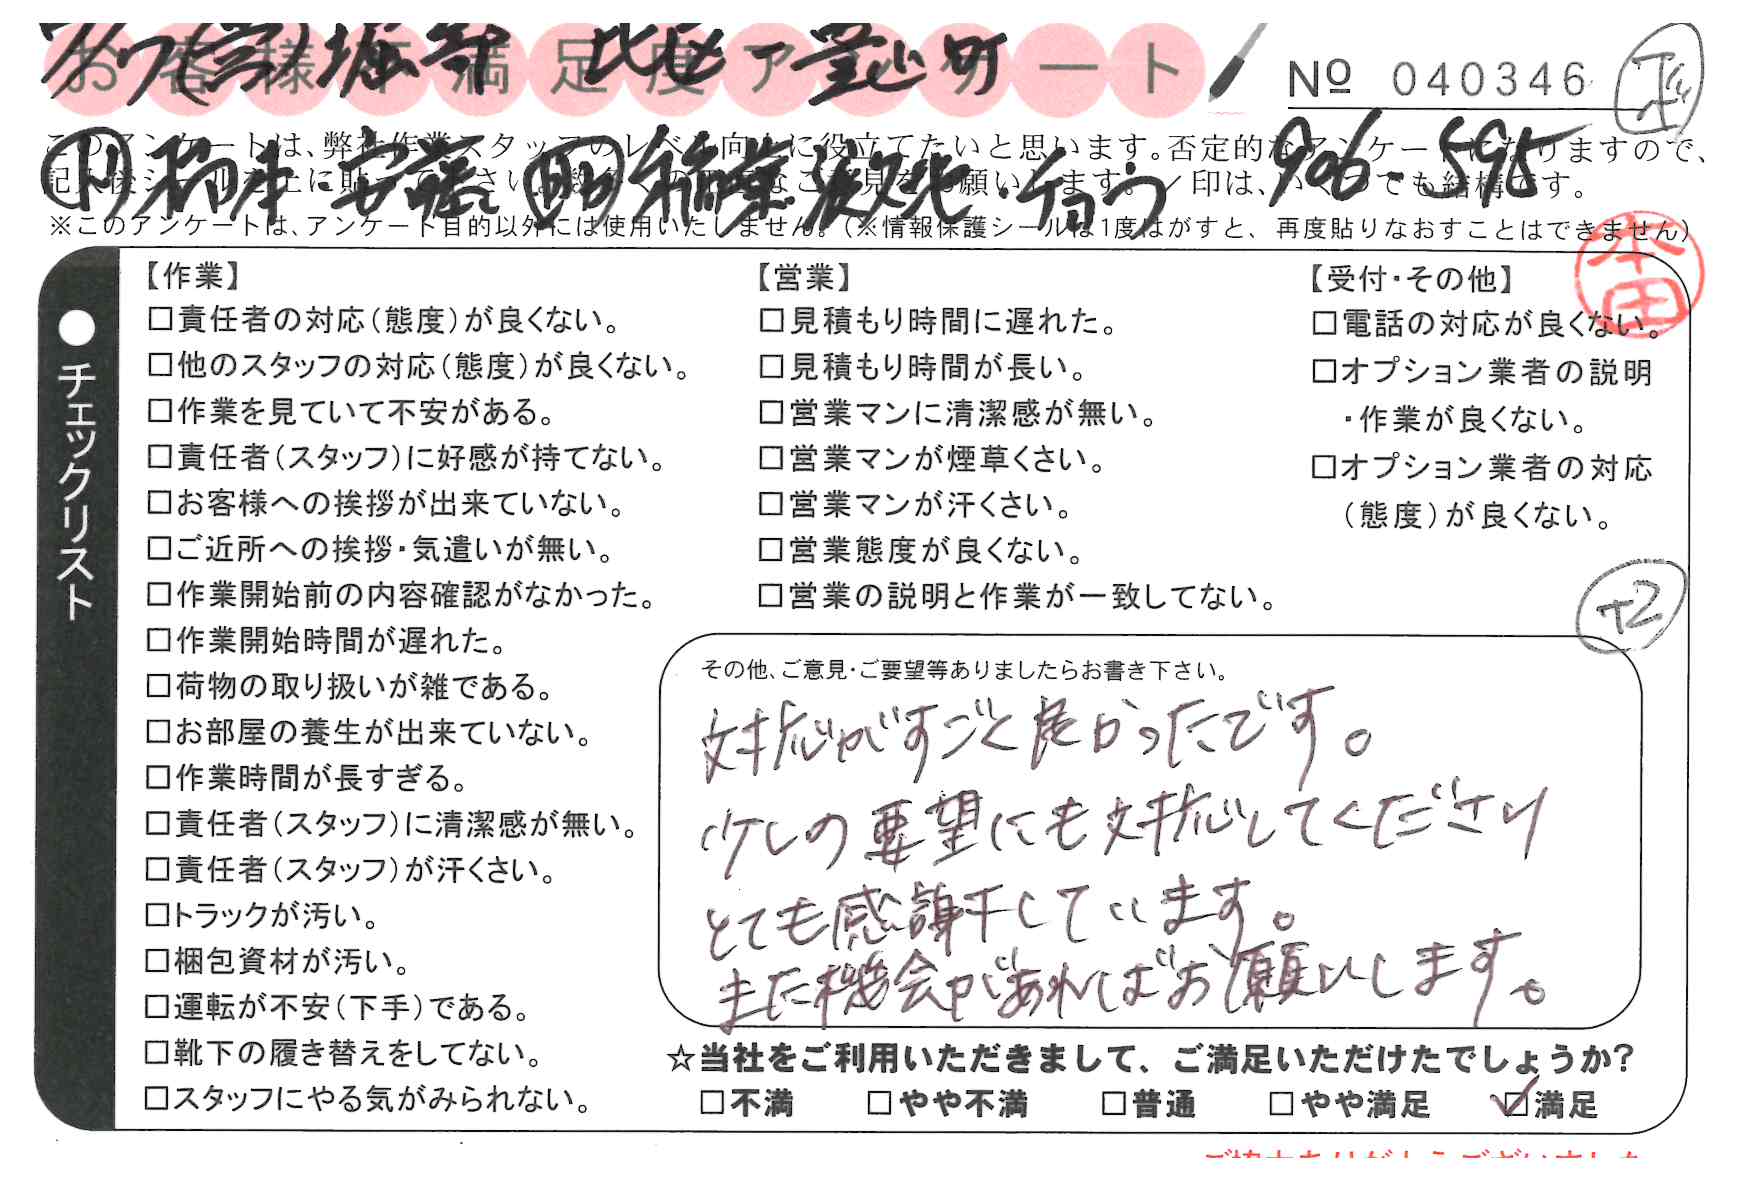 お客様不満足度アンケート
No 040346
このアンケートは、弊社作業スタッフのレベル向上に役立てたいと思います。否定的なアンケートになりますので、
※このアンケートは、アンケート目的以外には使用いたしません。(※情報保護シールは1度はがすと、再度貼りなおすことはできません)
906-595
本田
●チェックリスト
【作業】
□責任者の対応(態度)が良くない。
□他のスタッフの対応(態度)が良くない。
□作業を見ていて不安がある。
□責任者(スタッフ)に好感が持てない。
□お客様への挨拶が出来ていない。
□ご近所への挨拶・気遣いが無い。
□作業開始前の内容確認がなかった。
□作業開始時間が遅れた。
□荷物の取り扱いが雑である。
□お部屋の養生が出来ていない。
□作業時間が長すぎる。
□責任者(スタッフ)に清潔感が無い。
□責任者(スタッフ)が汗くさい。
□トラックが汚い。
□梱包資材が汚い。
□運転が不安(下手)である。
□靴下の履き替えをしてない。
□スタッフにやる気がみられない。
【営業】
□見積もり時間に遅れた。
□見積もり時間が長い。
□営業マンに清潔感が無い。
□営業マンが煙草くさい。
□営業マンが汗くさい。
□営業態度が良くない。
□営業の説明と作業が一致してない。
【受付・その他】
□電話の対応が良くない。
□オプション業者の説明
・作業が良くない。
□オプション業者の対応
(態度)が良くない。
+2
その他、ご意見・ご要望等ありましたらお書き下さい。
対応がすごく良かったです。
少しの要望にも対応してくださり
とても感謝しています。
また機会があればお願いします。
☆当社をご利用いただきまして、ご満足いただけたでしょうか?
□不満 □やや不満 □普通 □やや満足 ☑満足